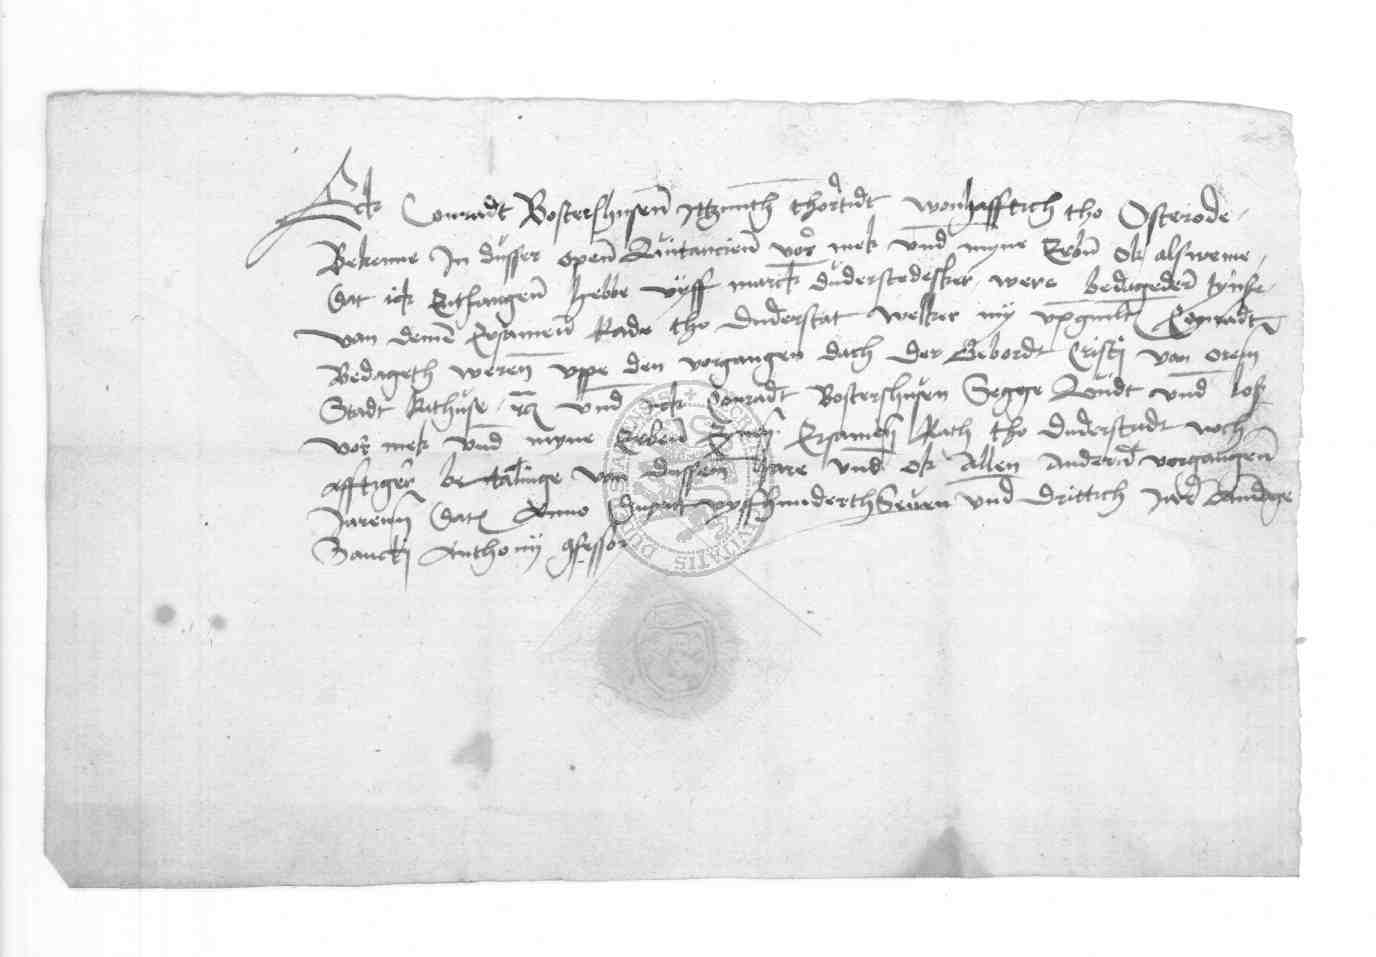 Eck Conradt Bostershusen Itzunth thor tidt wonhafftich tho Osterode
Bekenne In dusser open Quitancien vor mek vnd myne Erben ok alsweme
Dat ick Enthfangen hebbe vyff marck duderstedesker were bedageden tynse
van deme Ersamen Rade tho Duderstat welker my vpgnult Conradt
Bedageth weren vppe den vorgangen dach der Gebordt Cristi van orem
Stadt Rathuse vnd Ick Conradt Bostershusen Segge Quidt vnd loß
vor mek vnd myne Erben Ersamen Rath tho Duderstadt noch
afftiger betalinge van dussem Jare vnd ok allen andern vorgangen
Jaren Dat Anno Dusent vyffhunderth Seuen vnd drittich Am dage
Sancti Anthonij
CIVITATIS DUDERSTADENSIS